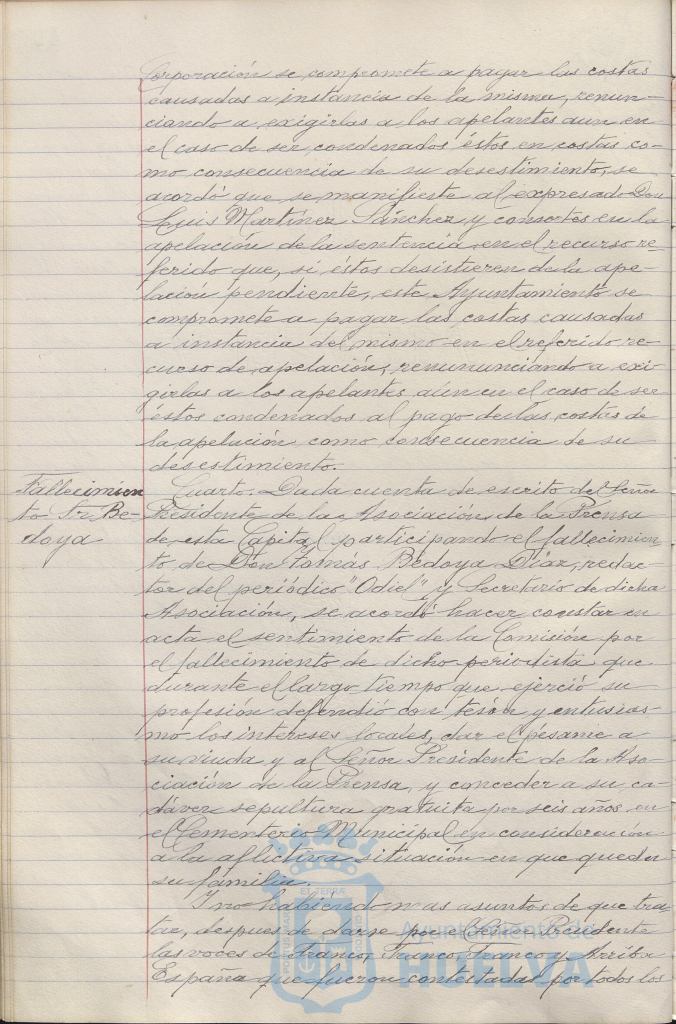 Corporación se compromete a pagar las costas
causadas a instancia de la misma, renun-
ciando a exigirlas a los apelantes aun en
el caso de ser condenados éstos en costas co-
mo consecuencia de su desestimiento, se
acordó que se manifieste al expresado Don
Luis Martínez Sánchez y consortes en la
apelación de la sentencia en el recurso re-
ferido que, si éstos desistieren de la ape-
lación pendiente, este Ayuntamiento se
compromete a pagar las costas causadas
a instancia del mismo en el referido re-
curso de apelación, renununciando a exi-
girlas a los apelantes aún en el caso de ser
éstos condenados al pago de las costas de
la apelación como consecuencia de su
desestimiento.
Fallecimien
to Sr. Be-
doya
Cuarto. Dada cuenta de escrito del Señor
Presidente de la Asociación de la Prensa
de esta Capital participando el fallecimien-
to de Don Tomás Bedoya Díaz, redac-
tor del periódico "Odiel" y Secretario de dicha
Asociación, se acordó hacer constar en
acta el sentimiento de la Comisión por
el fallecimiento de dicho periodista que
durante el largo tiempo que ejerció su
profesión defendió con tesón y entusias-
mo los intereses locales, dar el pésame a
su viuda y al Señor Presidente de la Aso-
ciación de la Prensa, y conceder a su ca-
dáver sepultura gratuita por seis años en
el Cementerio Municipal en consideración
a la aflictiva situación en que queda
su familia.
Y no habiendo mas asuntos de que tra-
tar, despues de darse por el Señor Presidente
las voces de Franco, Franco, Franco y Arriba
España que fueron contestadas por todos los
Ayuntamiento de
HUELVA